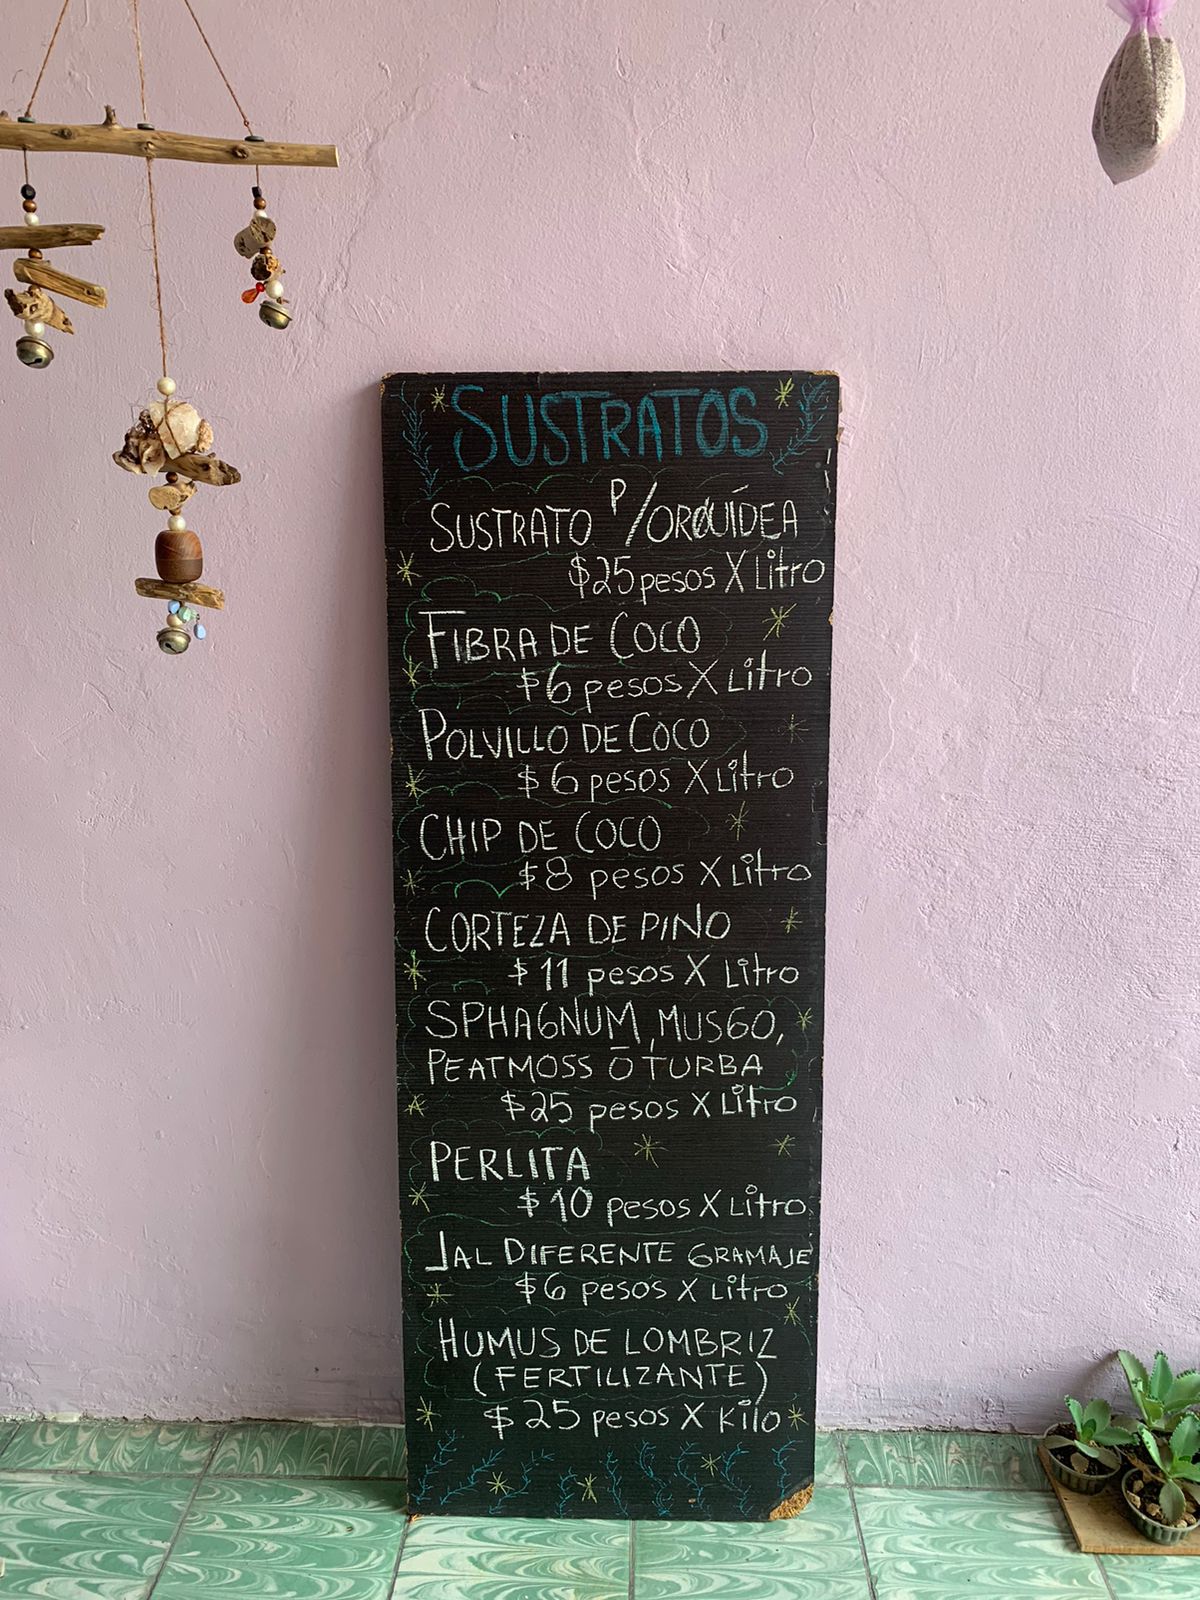 SUSTRATOS
SUSTRATO P/ORQUÍDEA
$25 pesos X Litro
FIBRA DE COCO
$6 pesos X Litro
POLVILLO DE COCO
$6 pesos X Litro
CHIP DE COCO
$8 pesos X Litro
CORTEZA DE PINO
$11 pesos X Litro
SPHAGNUM, MUSGO,
PEATMOSS Ó TURBA
$25 pesos X Litro
PERLITA
$10 pesos X Litro
JAL DIFERENTE GRAMAJE
$6 pesos X Litro
HUMUS DE LOMBRIZ
(FERTILIZANTE)
$25 pesos X Kilo